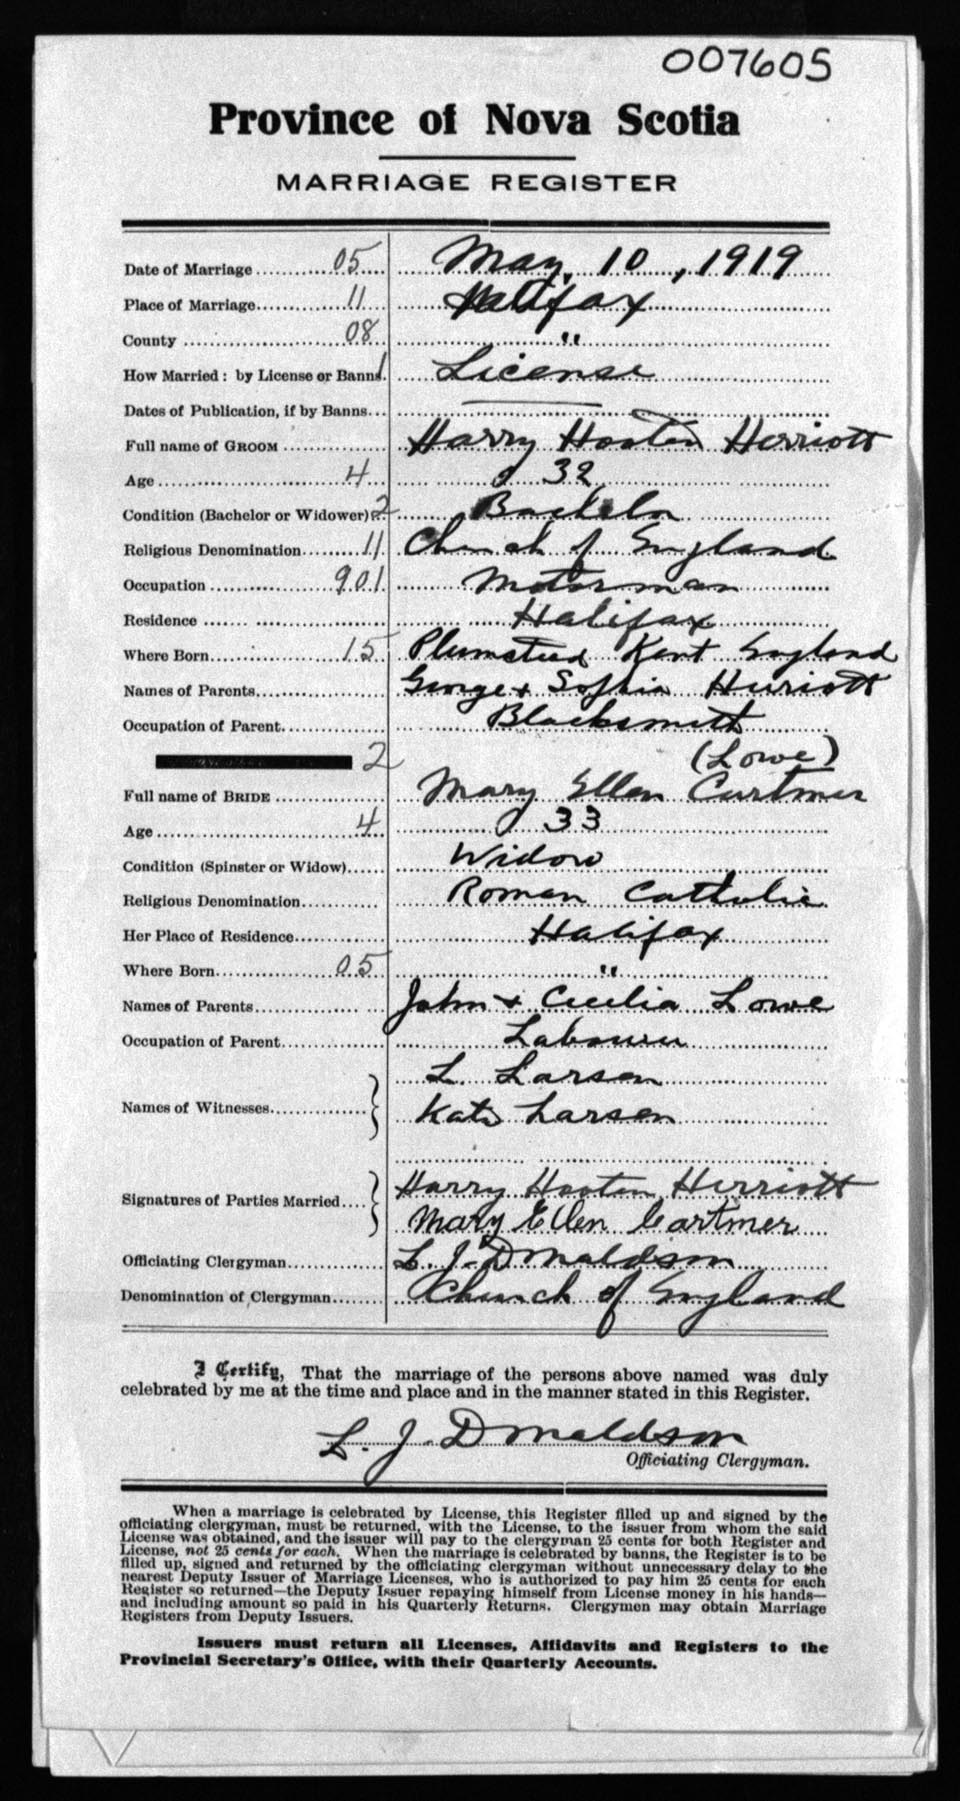 007605
Province of Nova Scotia
MARRIAGE REGISTER
Date of Marriage 05 May, 10, 1919
Place of Marriage 11 Halifax
County 08 "
How Married: by License or Banns 1 License
Dates of Publication, if by Banns
Full name of GROOM Harry Hooten Herriott
Age 4 32
Condition (Bachelor or Widower) 2 Bachelor
Religious Denomination 11 Church of England
Occupation 901 Motorman
Residence Halifax
Where Born 15 Plumsted Kent England
Names of Parents George + Sophia Herriott
Occupation of Parent Blacksmith
2 (Lowe)
Full name of BRIDE Mary Ellen Cartmer
Age 4 33
Condition (Spinster or Widow) Widow
Religious Denomination Roman Catholic
Her Place of Residence Halifax
Where Born 05 "
Names of Parents John + Cecilia Lowe
Occupation of Parent Labourer
L. Larsen
Names of Witnesses Kate Larsen
Signatures of Parties Married Harry Hooten Herriott
Mary Ellen Cartmer
Officiating Clergyman L. J. Donaldson
Denomination of Clergyman Church of England
I Certify, That the marriage of the persons above named was duly
celebrated by me at the time and place and in the manner stated in this Register.
L. J. Donaldson
Officiating Clergyman.
When a marriage is celebrated by License, this Register filled up and signed by the
officiating clergyman, must be returned, with the License, to the issuer from whom the said
License was obtained, and the issuer will pay to the clergyman 25 cents for both Register and
License, not 25 cents for each. When the marriage is celebrated by banns, the Register is to be
filled up, signed and returned by the officiating clergyman without unnecessary delay to the
nearest Deputy Issuer of Marriage Licenses, who is authorized to pay him 25 cents for each
Register so returned—the Deputy Issuer repaying himself from License money in his hands—
and including amount so paid in his Quarterly Returns. Clergymen may obtain Marriage
Registers from Deputy Issuers.
Issuers must return all Licenses, Affidavits and Registers to the
Provincial Secretary's Office, with their Quarterly Accounts.